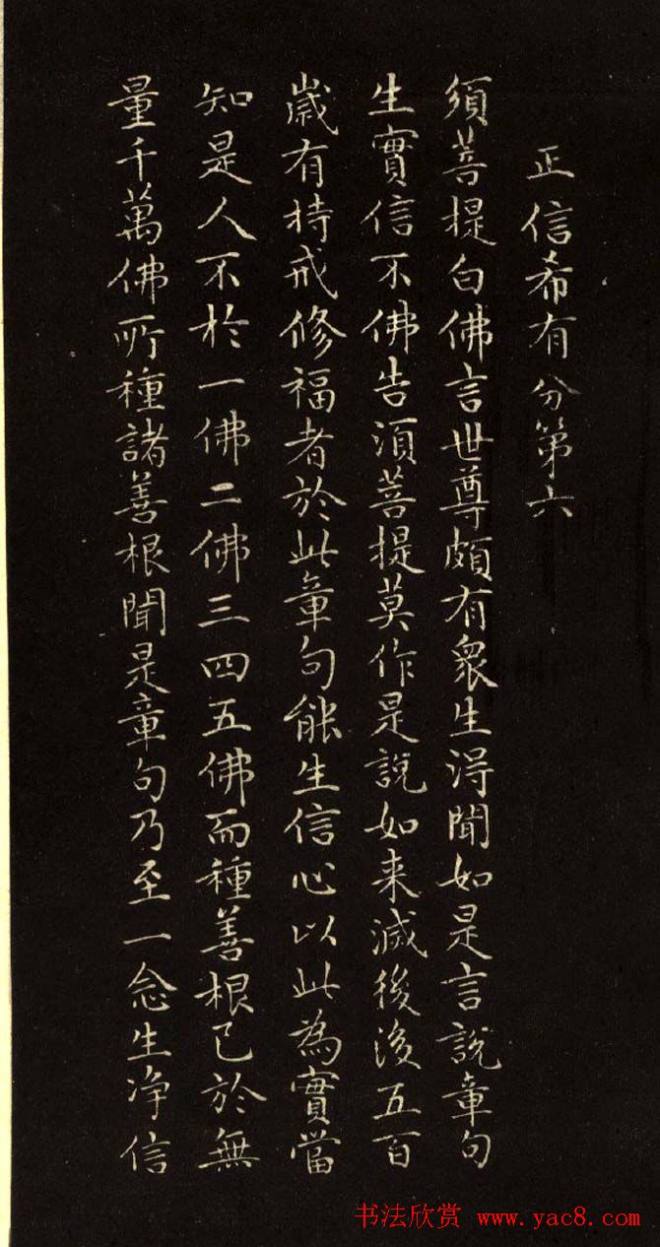 正信希有分第六
須菩提白佛言世尊頗有衆生得聞如是言說章句
生實信不佛告須菩提莫作是說如来滅後後五百
歲有持戒修福者於此章句能生信心以此為實當
知是人不於一佛二佛三四五佛而種善根已於無
量千萬佛所種諸善根聞是章句乃至一念生净信
书法欣赏 www.yac8.com